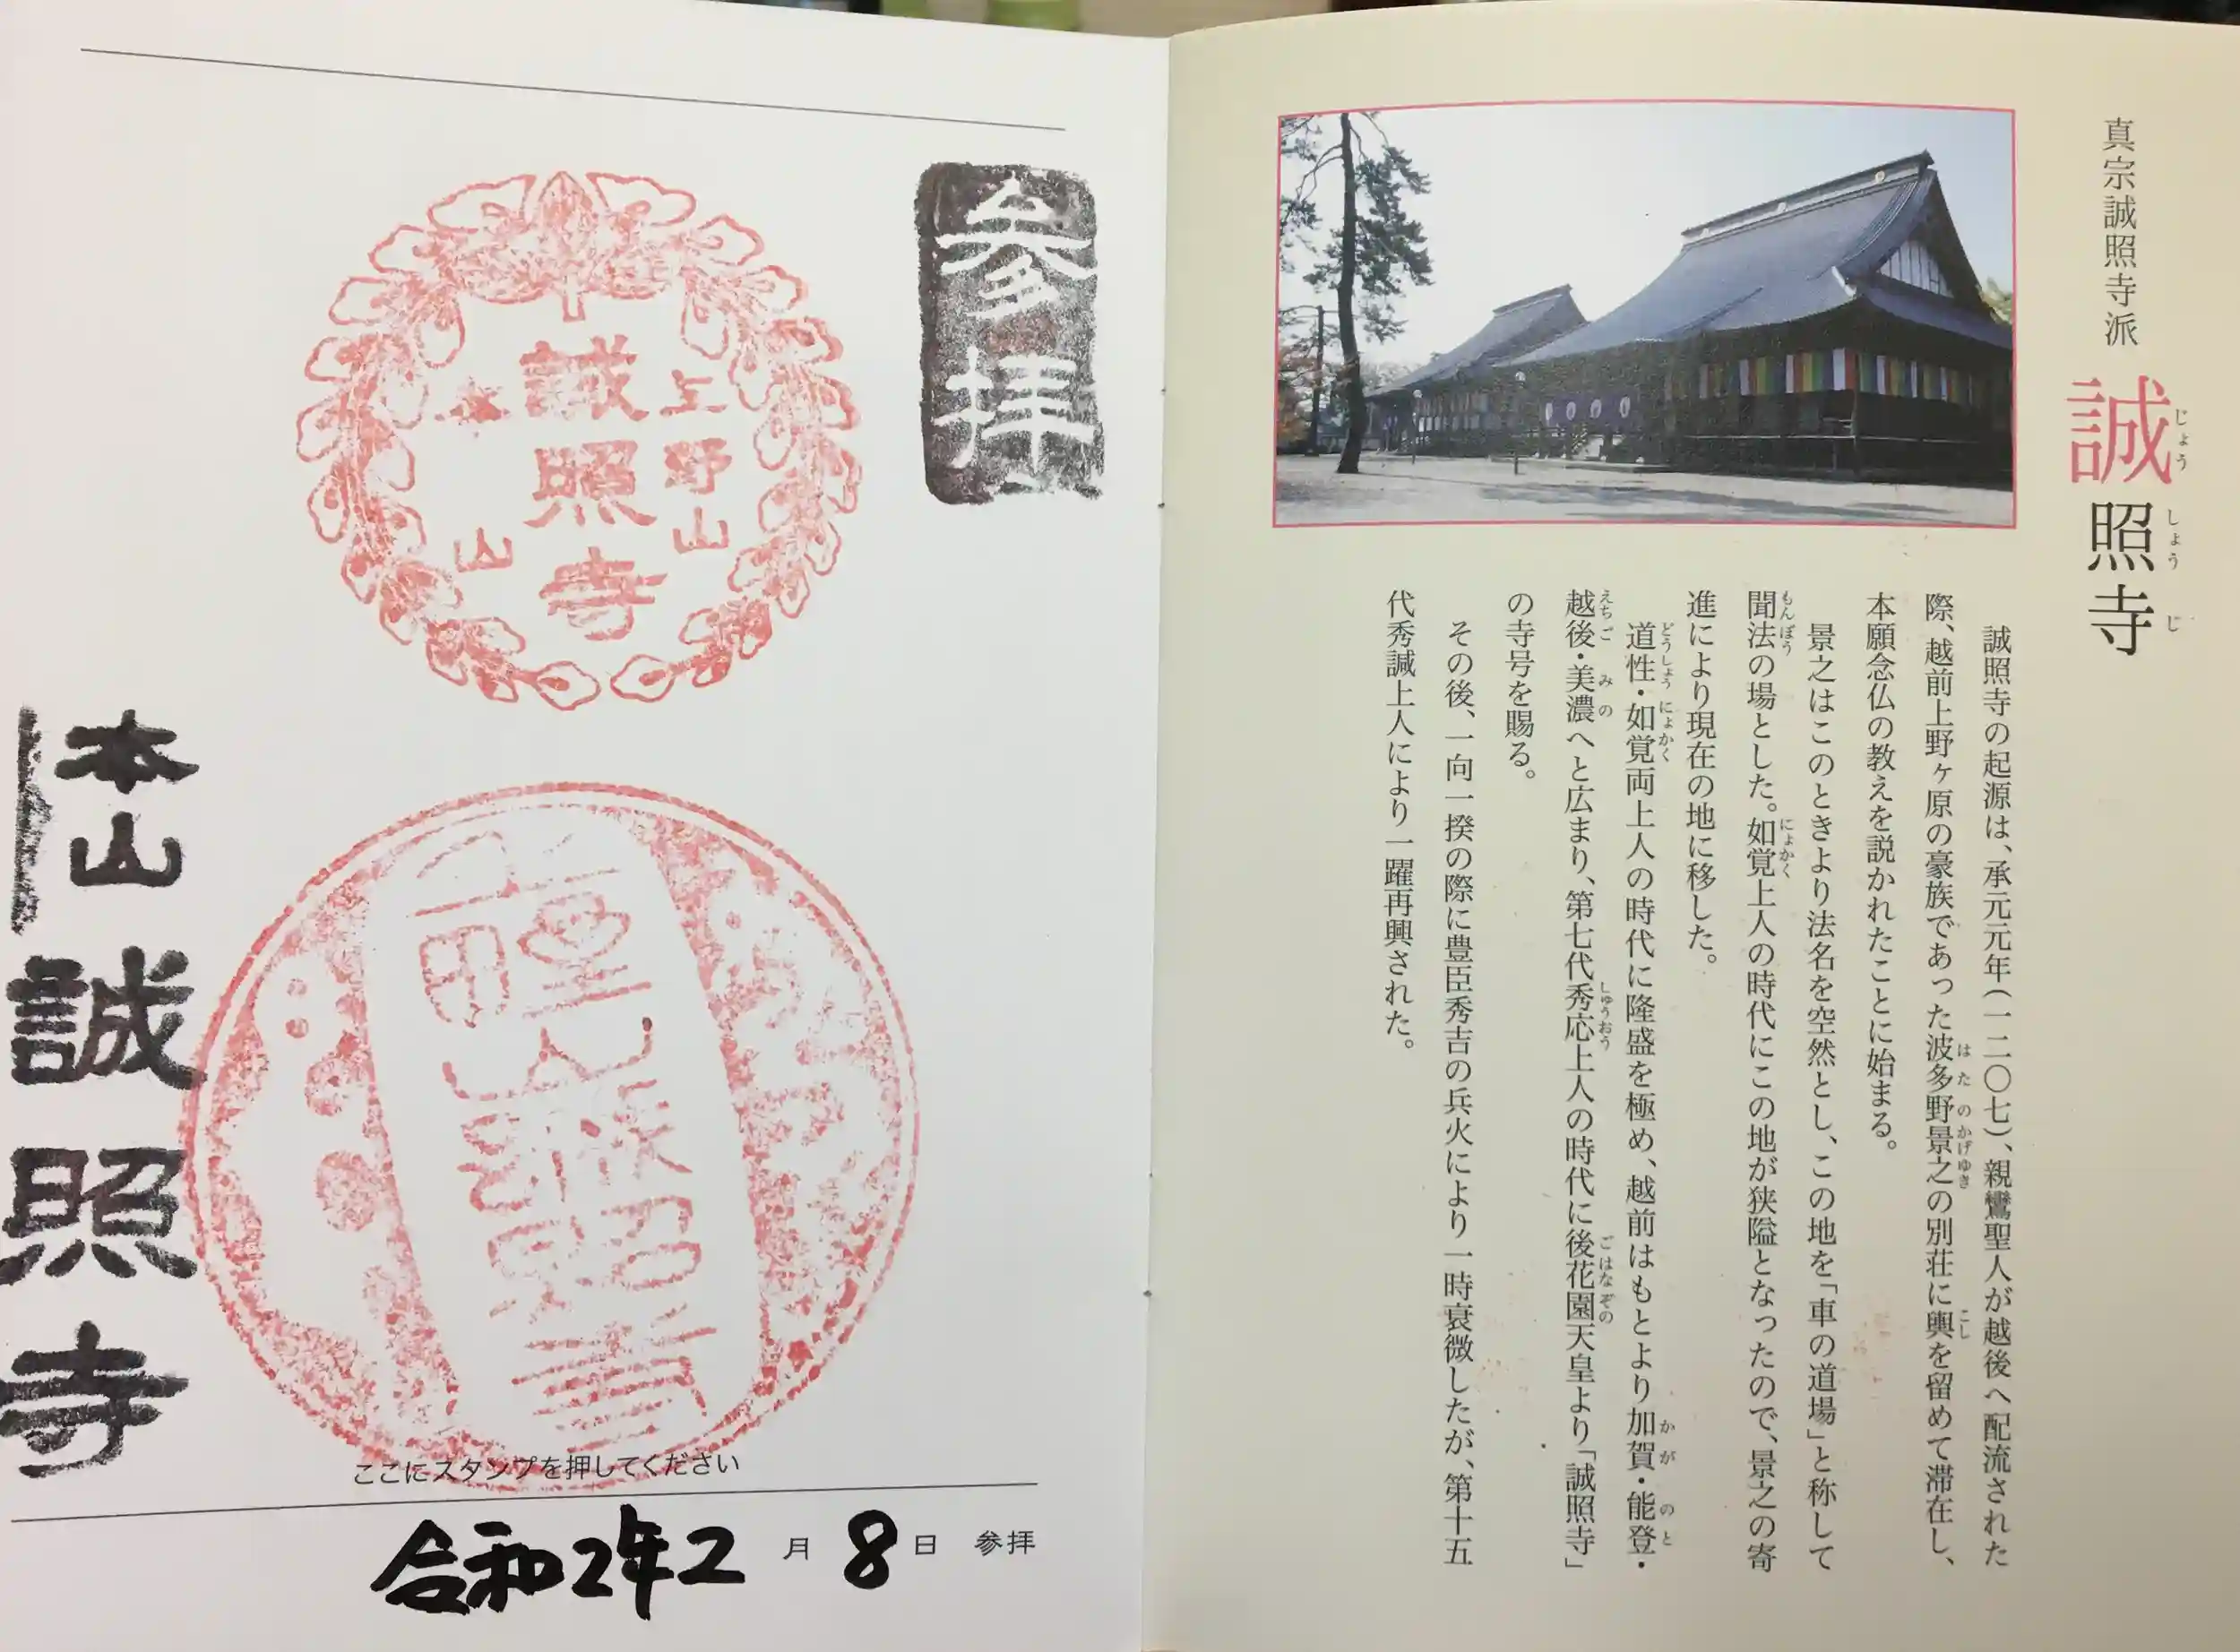 真宗誠照寺派
誠照寺
じょうしょうじ
誠照寺の起源は、承元元年(一二〇七)、親鸞聖人が越後へ配流された
際、越前上野ヶ原の豪族であった波多野景之の別荘に輿を留めて滞在し、
はたのかげゆき
こし
本願念仏の教えを説かれたことに始まる。
景之はこのときより法名を空然とし、この地を「車の道場」と称して
聞法の場とした。如覚上人の時代にこの地が狭隘となったので、景之の寄
もんぽう
にょかく
進により現在の地に移した。
道性・如覚両上人の時代に隆盛を極め、越前はもとより加賀・能登・
どうしょう
にょかく
かが
のと
越後・美濃へと広まり、第七代秀応上人の時代に後花園天皇より「誠照寺」
えちご
みの
しゅうおう
ごはなぞの
の寺号を賜る。
その後、一向一揆の際に豊臣秀吉の兵火により一時衰微したが、第十五
代秀誠上人により一躍再興された。
参拝
上野山
誠照寺
本山
誠照寺
ここにスタンプを押してください
令和2年2月8日 参拝